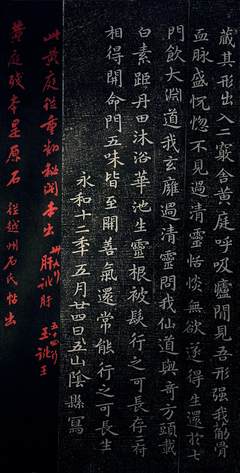 藏其形出入二竅舍黃庭呼吸廬間見吾形强我筋骨
血脉盛怳惚不見過清靈恬惔無欲遂得生還於七
門飲大淵道我玄雍過清靈問我仙道與奇方頭載
白素距丹田沐浴華池生靈根被髮行之可長存二府
相得開命門五味皆至開善氣還常能行之可長生
永和十二年五月廿四日五山陰縣寫
此黃庭從重勒秘閣本出 訛 玉訛王
黃庭殘本是原石 從越州石氏帖出